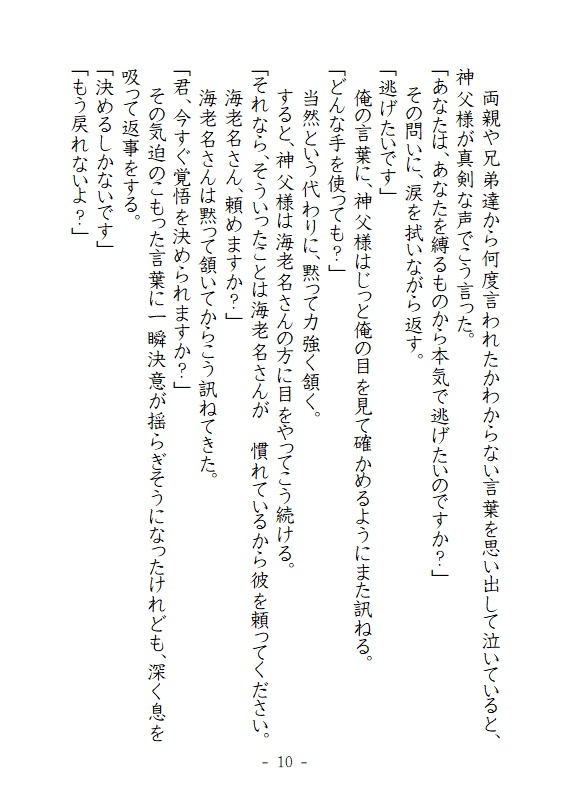 両親や兄弟達から何度言われたかわからない言葉を思い出して泣いていると、
神父様が真剣な声でこう言った。
「あなたは、あなたを縛るものから本気で逃げたいのですか？」
　その問いに、涙を拭いながら返す。
「逃げたいです」
　俺の言葉に、神父様はじっと俺の目を見て確かめるようにまた訊ねる。
「どんな手を使っても？」
　当然という代わりに、黙って力強く頷く。
　すると、神父様は海老名さんの方に目をやってこう続ける。
「それなら、そういったことは海老名さんが　慣れているから彼を頼ってください。
海老名さん、頼めますか？」
　海老名さんは黙って頷いてからこう訊ねてきた。
「君、今すぐ覚悟を決められますか？」
　その気迫のこもった言葉に一瞬決意が揺らぎそうになったけれども、深く息を
吸って返事をする。
「決めるしかないです」
「もう戻れないよ？」
- 10 -